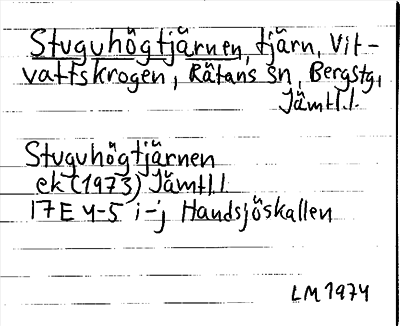 Stuguhögtjärnen, tjärn, Vit-
vattskrogen, Rätans sn, Bergstg,
Jämtl.l.
Stuguhögtjärnen
ek (1973) Jämtl.l
17E 4-5 i-j Handsjöskallen
LM 1974